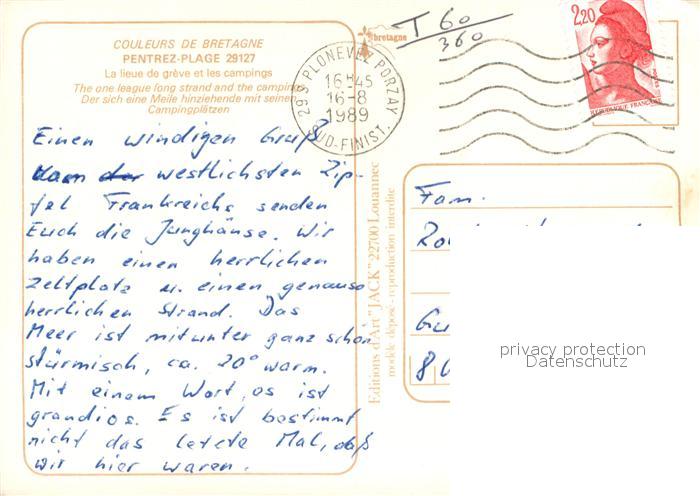 COULEURS DE BRETAGNE
PENTREZ-PLAGE 29127
La lieue de grève et les campings
The one league long strand and the camping
Der sich eine Meile hinziehende mit seinen
Campingplätzen
Einen windigen Gruß
vom der westlichsten Zip-
fel Frankreichs senden
Euch die Junghänse. Wir
haben einen herrlichen
Zeltplatz u. einen genauso
herrlichen Strand. Das
Meer ist mitunter ganz schön
stürmisch, ca. 20° warm.
Mit einem Wort, es ist
grandios. Es ist bestimmt
nicht das letzte Mal, daß
wir hier waren.
bretagne
T 60
360
29 S PLONEVEZ PORZAY
16H45
16-8
1989
SUD-FINIST.
2,20
REPUBLIQUE FRANÇAISE
Editions d'Art "JACK" 22700 Louannec
modèle déposé - reproduction interdite
Fam.
privacy protection
Datenschutz